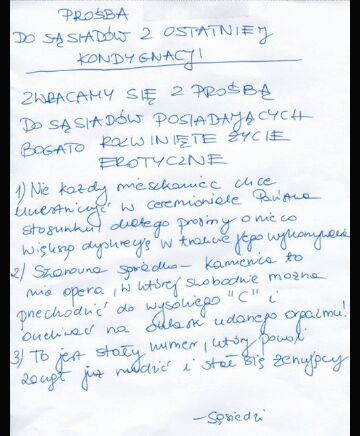 PROŚBA
DO SĄSIADÓW Z OSTATNIEJ
KONDYGNACJI
ZWRACAMY SIĘ Z PROŚBĄ
DO SĄSIADÓW POSIADAJĄCYCH
BOGATO ROZWINIĘTE ŻYCIE
EROTYCZNE
1) Nie każdy mieszkaniec chce
uczestniczyć w ceremoniale Państwa
stosunku, dlatego prosimy o nieco
większą dyskrecję w trakcie jego wykonywania
2) Szanowna sąsiadko - kamienica to
nie opera, w której swobodnie można
przechodzić do wysokiego "C" i
oczekiwać na oklaski udanego orgazmu!
3) To jest stały numer, który powoli
zaczął już nudzić i stał się żenujący
- Sąsiedzi